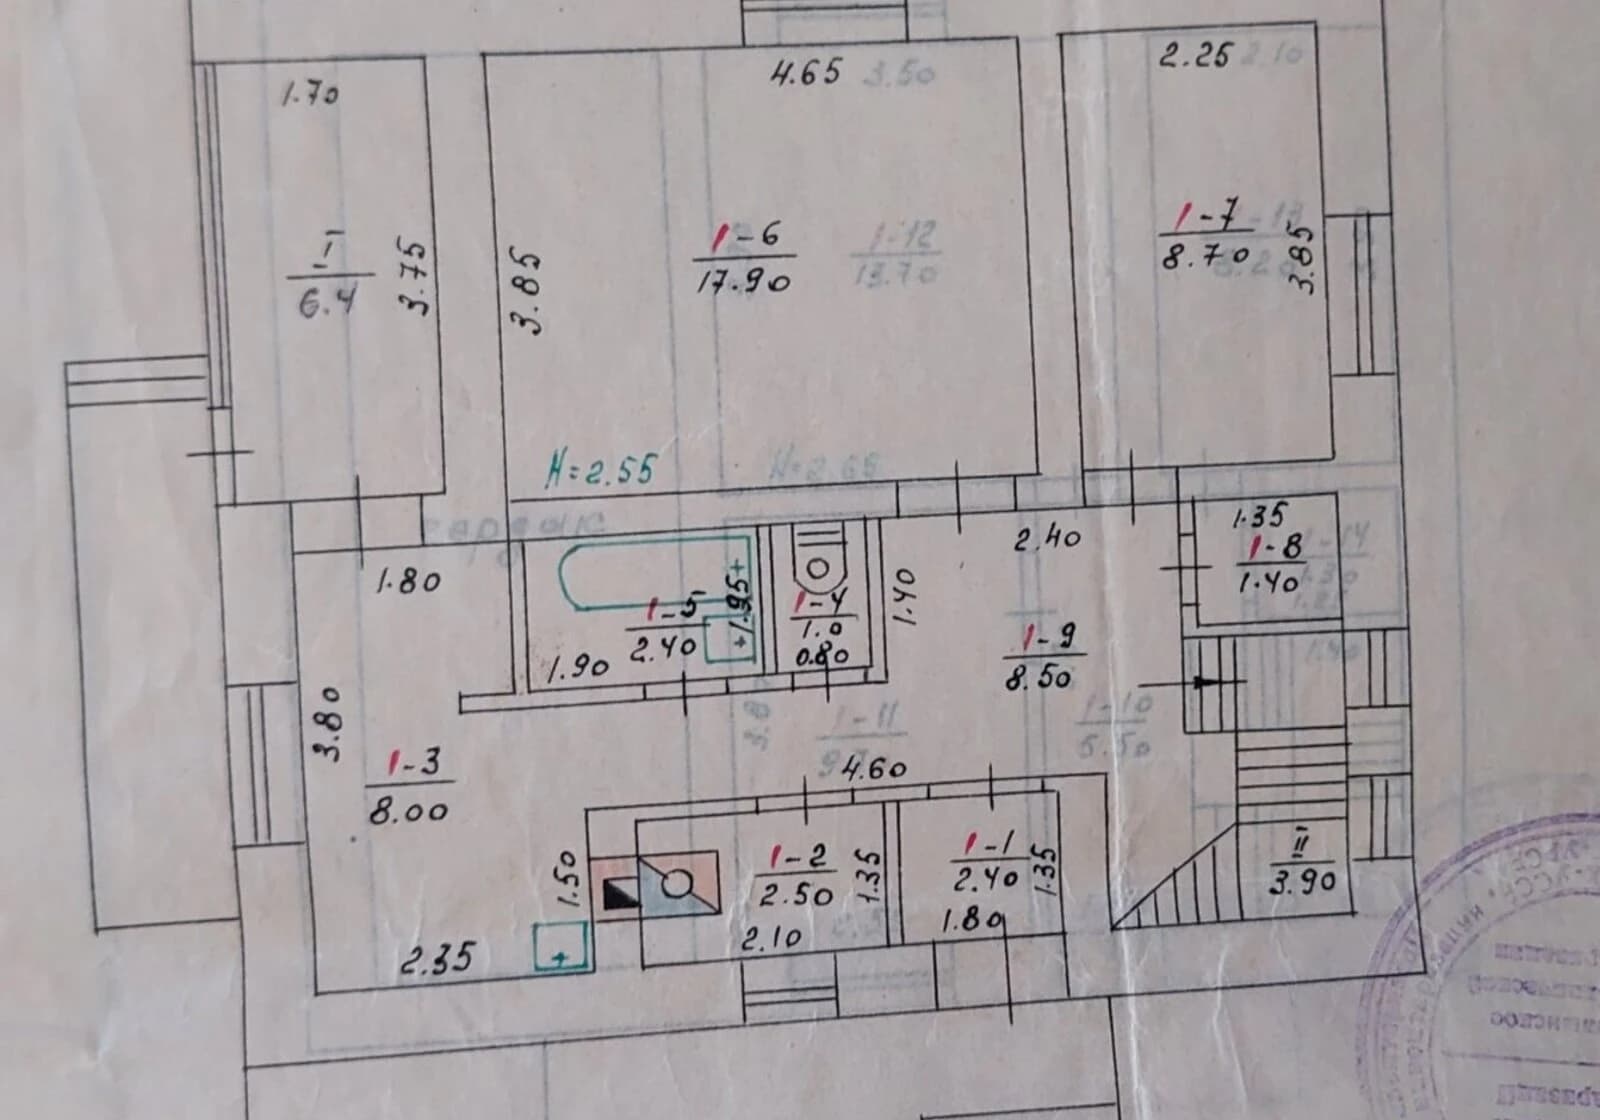 1.70
4.65
3.50
2.25
2.10
I
6.4
3.75
3.85
1-6
17.90
1-12
13.70
1-7
8.70
3.85
H=2.55
H=2.65
1.80
1-5
2.40
1.95
1.90
1-4
1.0
0.80
1.40
2.40
1.35
1-8
1.40
1-14
1-9
8.50
1-11
1-10
5.50
3.80
1-3
8.00
4.60
1.50
2.35
1-2
2.50
1.35
2.10
1-1
2.40
1.35
1.80
II
3.90